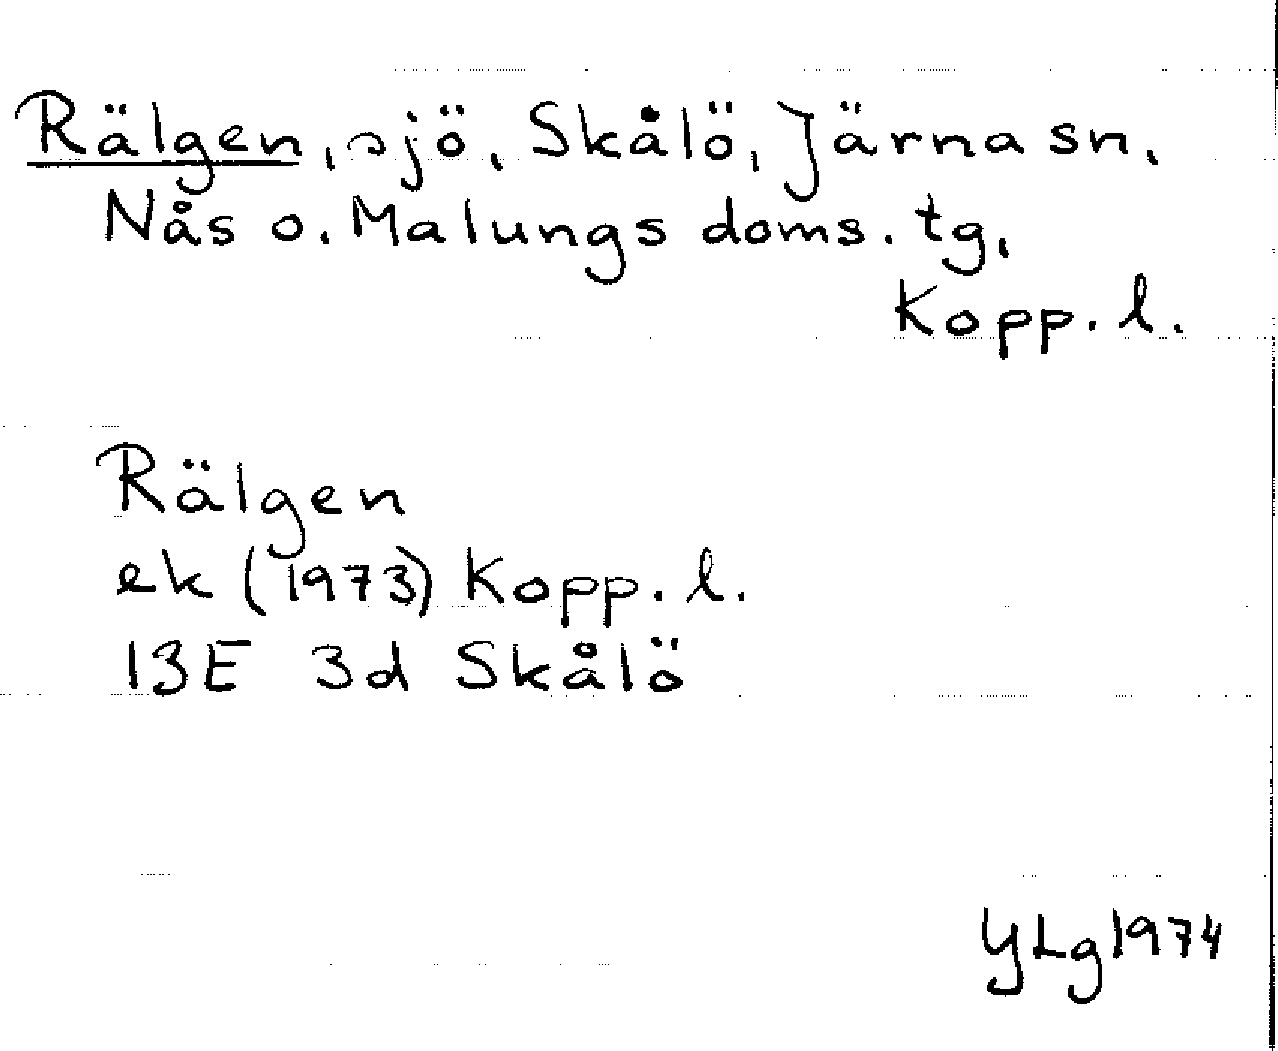 Rälgen, sjö, Skålö, Järna sn,
Nås o. Malungs doms. tg,
Kopp. l.
Rälgen
ek (1973) Kopp. l.
13E 3d Skålö
YLg 1974